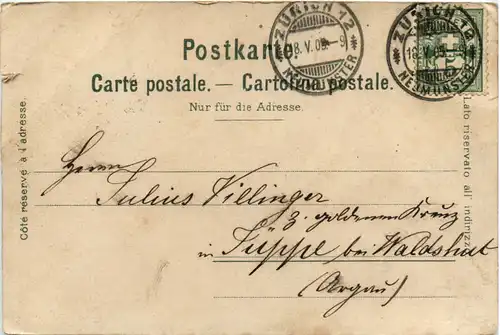 ZÜRICH 12
18.V.05.-9
NEUMÜNSTER
ZÜRICH 12
18.V.05.-9
NEUMÜNSTER
Postkarte.
Carte postale. — Cartolina postale.
Nur für die Adresse.
Côté réservé à l'adresse.
Lato riservato all' indirizzo
Herrn
Julius Villinger
z. goldenen Kreuz
in Füppl bei Waldshut
(Argau)